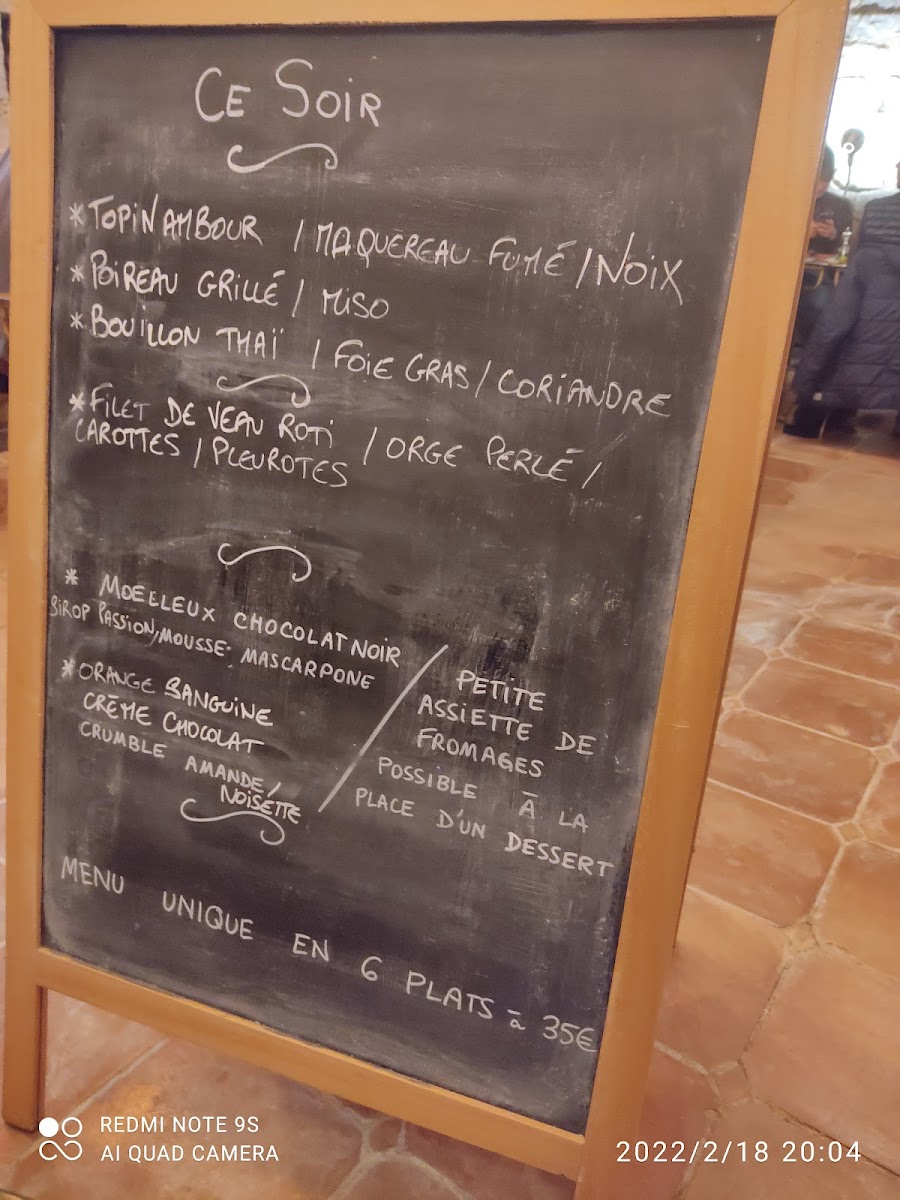 CE SOIR
* TOPINAMBOUR / MAQUEREAU FUMÉ / NOIX
* POIREAU GRILLÉ / MISO
* BOUILLON THAÏ / FOIE GRAS / CORIANDRE
* FILET DE VEAU ROTI / ORGE PERLÉ /
CAROTTES / PLEUROTES
* MOELLEUX CHOCOLAT NOIR
SIROP PASSION, MOUSSE MASCARPONE
* ORANGE SANGUINE
CRÈME CHOCOLAT
CRUMBLE AMANDE /
NOISETTE
/
PETITE
ASSIETTE DE
FROMAGES
POSSIBLE À LA
PLACE D'UN DESSERT
MENU UNIQUE EN 6 PLATS à 35€
REDMI NOTE 9S
AI QUAD CAMERA
2022/2/18 20:04